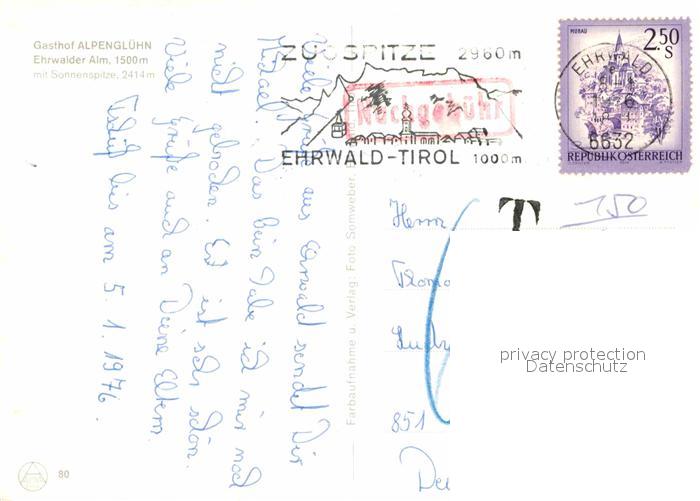 Gasthof ALPENGLÜHN
Ehrwalder Alm, 1500m
mit Sonnenspitze, 2414m
ZUGSPITZE 2960m
Nachgebühr
EHRWALD-TIROL 1000m
MURAU
2.50
S
EHRWALD
6632
REPUBLIK ÖSTERREICH
T
150
Viele Grüße aus Ehrwald sendet Dir
Michael. Das bin Tabe ist mir noch
nicht gebrochen. Es ist sehr schön.
Viele Grüße auch an Deine Eltern.
Tschüß bis am 5.1.1976.
Farbaufnahme u. Verlag: Foto Somweber,
Herrn
Thoma
Ludw
851
De
privacy protection
Datenschutz
80